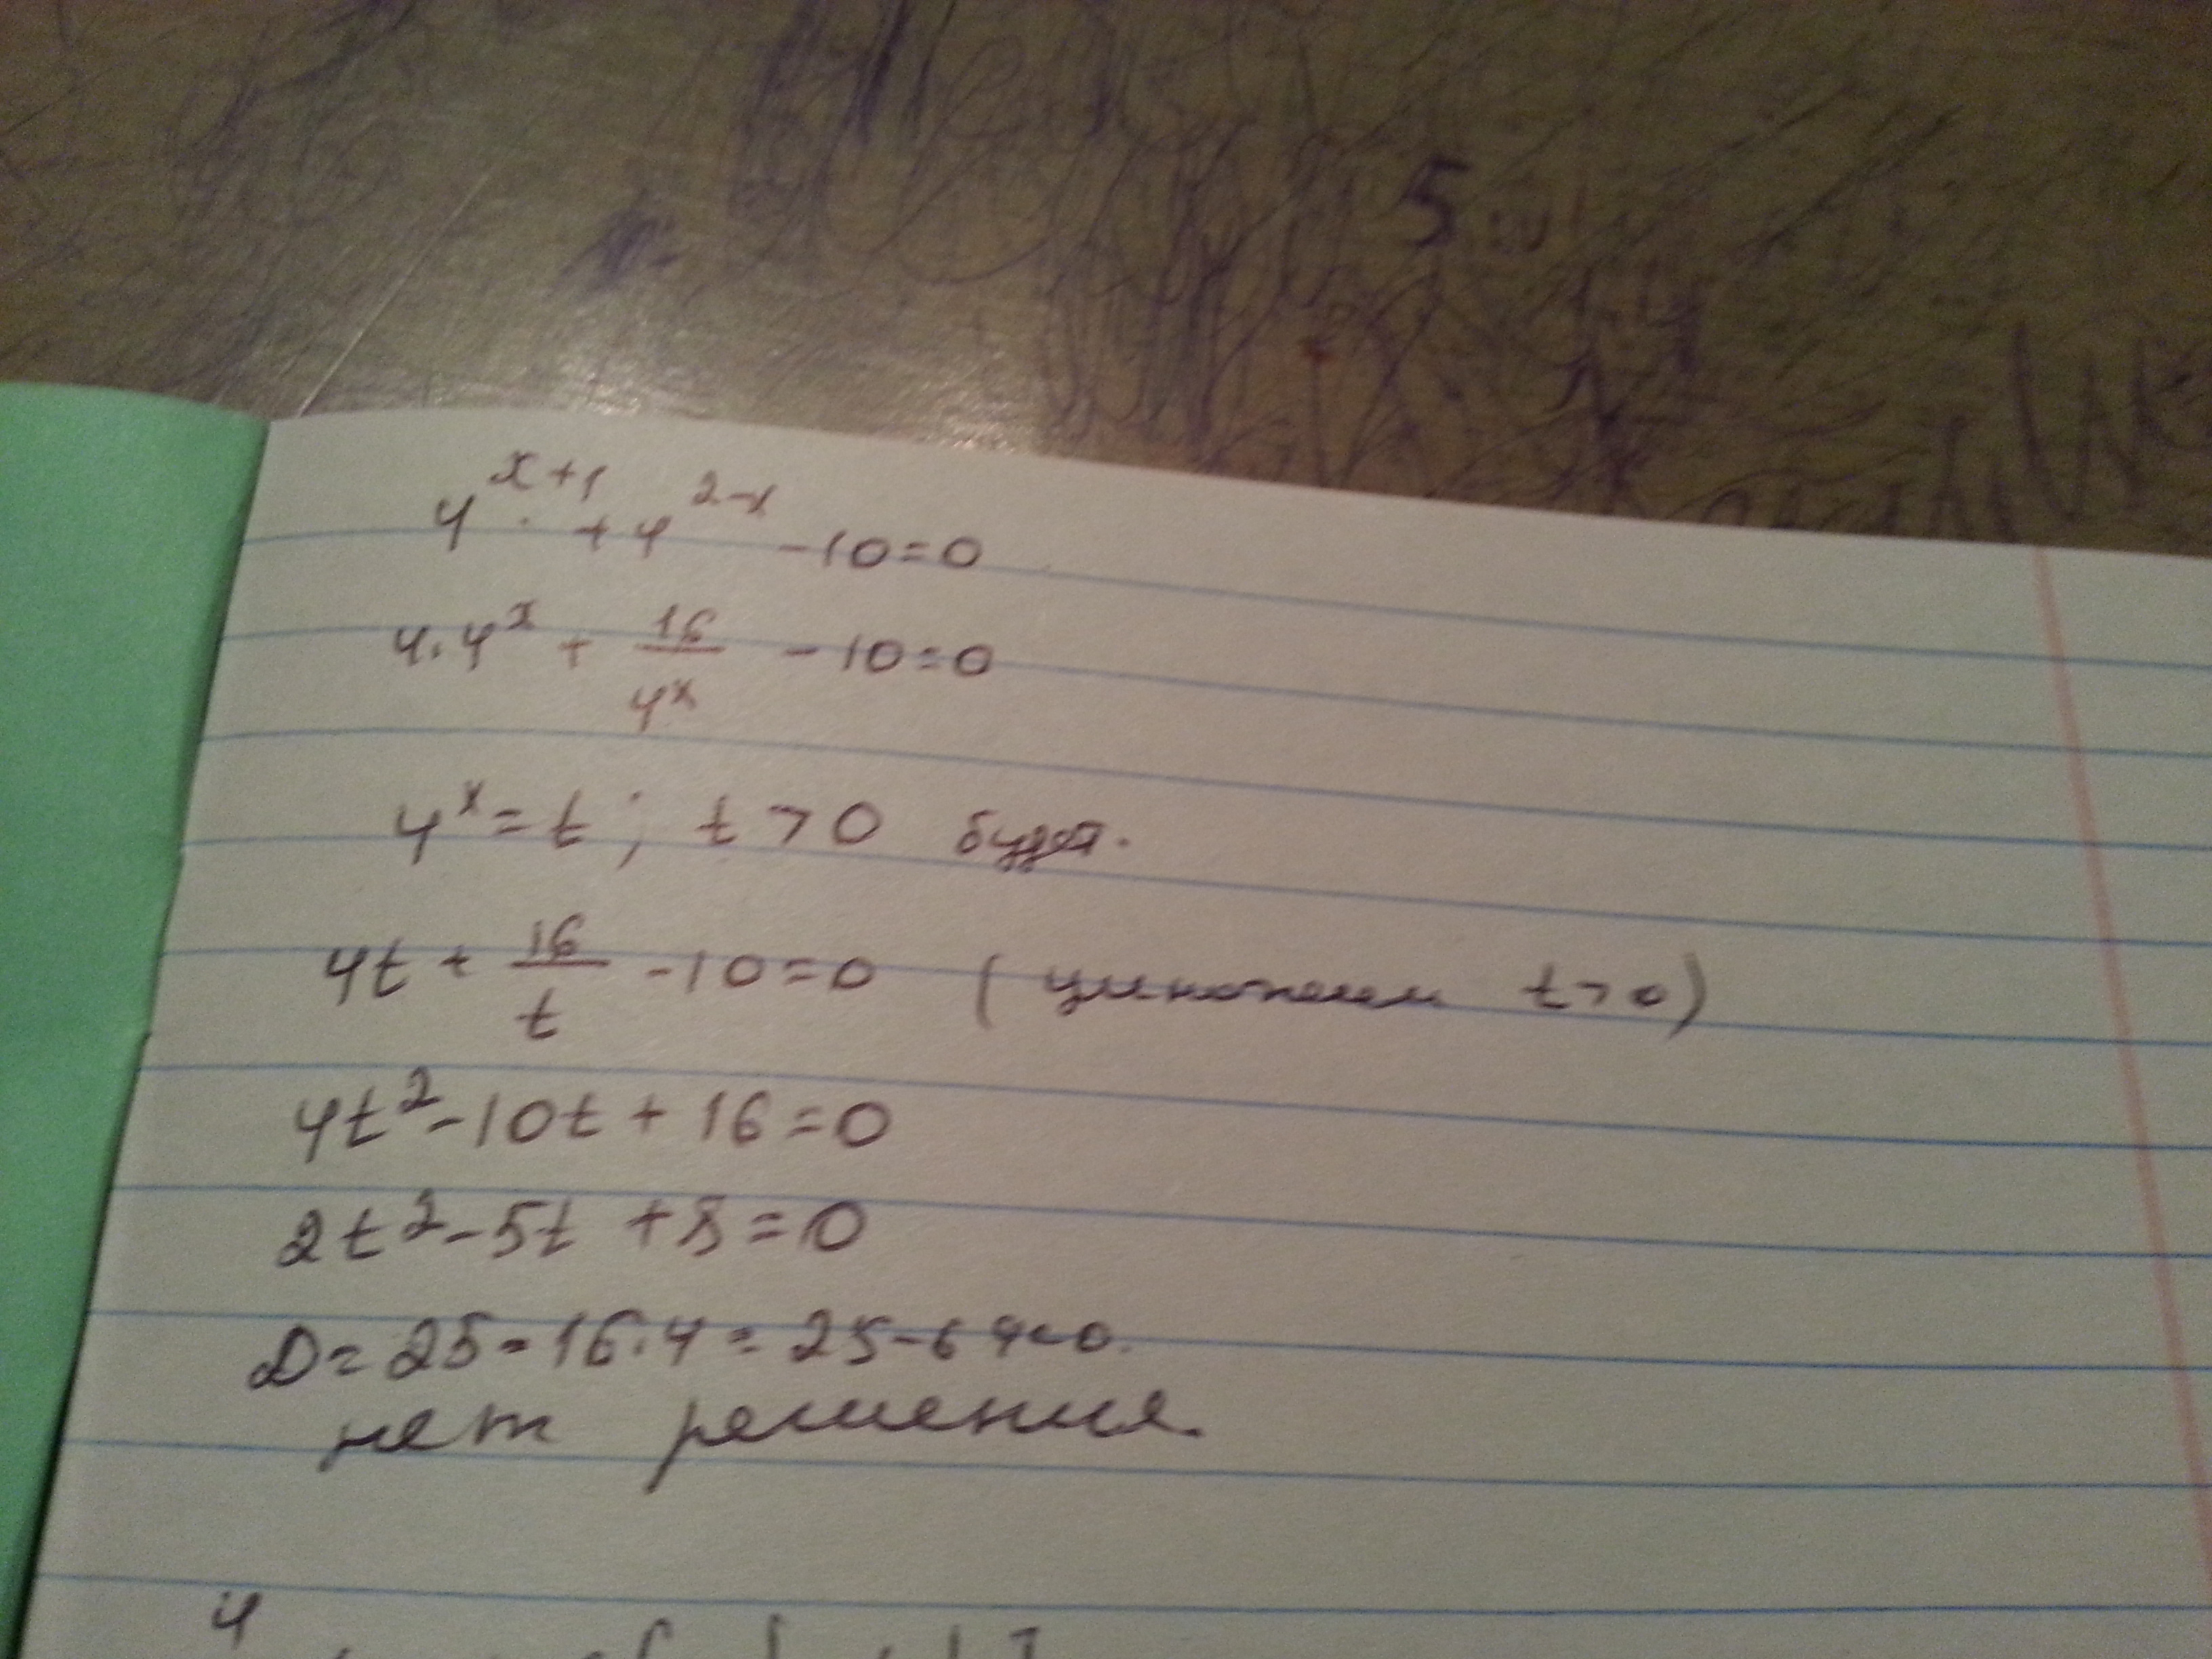 5
4^{x+1} + 4^{2-x} - 10 = 0
4·4^x + 16/4^x - 10 = 0
4^x = t; t > 0 будет.
4t + 16/t - 10 = 0 (умножим t > 0)
4t² - 10t + 16 = 0
2t² - 5t + 8 = 0
D = 25 - 16·4 = 25 - 64 < 0.
нет решения.
4